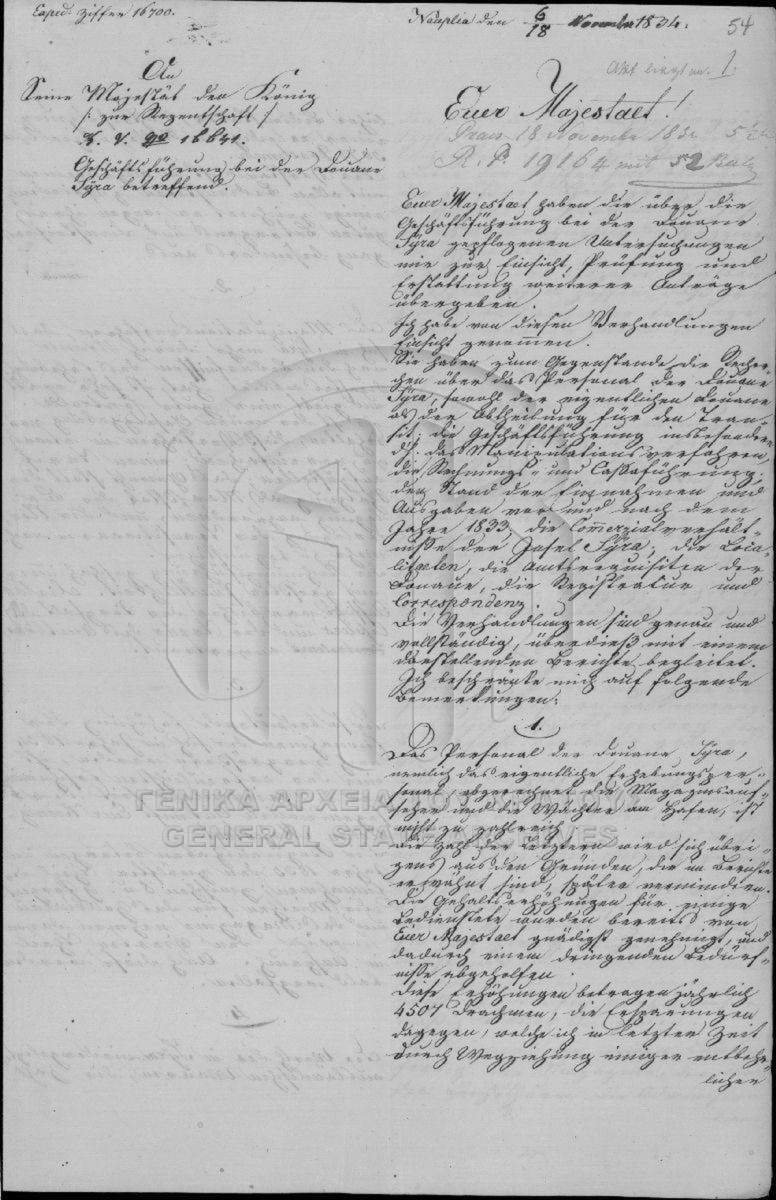 Exped. Ziffer 16700.
Nauplia den 6/18 November 1834.
54
Akt liegt an. 1.
An
Seine Majestät den König
/: zur Regentschaft :/
K. V. No 16641.
Geschäftsführung bei der Douane
Syra betreffend.
Euer Majestaet!
Praes. 18 November 1834
R. Nr. 19164 mit 52 Beil.
Euer Majestaet haben die über die
Geschäftsführung bei der Douane
Syra gepflogenen Untersuchungen
mir zur Einsicht, Prüfung und
Erstattung weiterer Anträge
übergeben.
Ich habe von diesen Verhandlungen
Einsicht genommen.
Sie haben zum Gegenstande die Recher-
chen über das Personal der Douane
Syra, sowohl der eigentlichen Douane
als der Abtheilung für den Tran-
sit; die Geschäftsführung insbesondere
d.h. das Manipulationsverfahren,
die Rechnungs- und Cassaführung;
den Stand der Einnahmen und
Ausgaben vor und nach dem
Jahre 1833, die Comerzialverhält-
nisse der Insel Syra, die Loca-
litaeten, die Amtsrequisiten der
Douane, die Registratur und
Correspondenz.
Die Verhandlungen sind genau und
vollständig, überdieß mit einem
darstellenden Berichte begleitet.
Ich beschränke mich auf folgende
Bemerkungen:
1.
Das Personal der Douane Syra,
nemlich das eigentliche Erhebungsper-
sonal, abgerechnet die Magazinsauf-
seher und die Wächter am Hafen, ist
nicht zu zahlreich.
Die Zahl der Letztern wird sich übri-
gens aus den Gründen, die im Berichte
erwähnt sind, später vermindern.
Die Gehaltserhöhungen für einige
Bedienstete wurden bereits von
Euer Majestaet gnädigst genehmigt, und
dadurch einem dringenden Bedürf-
nisse abgeholfen.
Diese Erhöhungen betragen jährlich
4507 Drachmen, die Ersparungen
dagegen, welche ich in letzter Zeit
durch Wegziehung einiger entbehr-
licher
ΓΕΝΙΚΑ ΑΡΧΕΙΑ
GENERAL STATE ARCHIVES